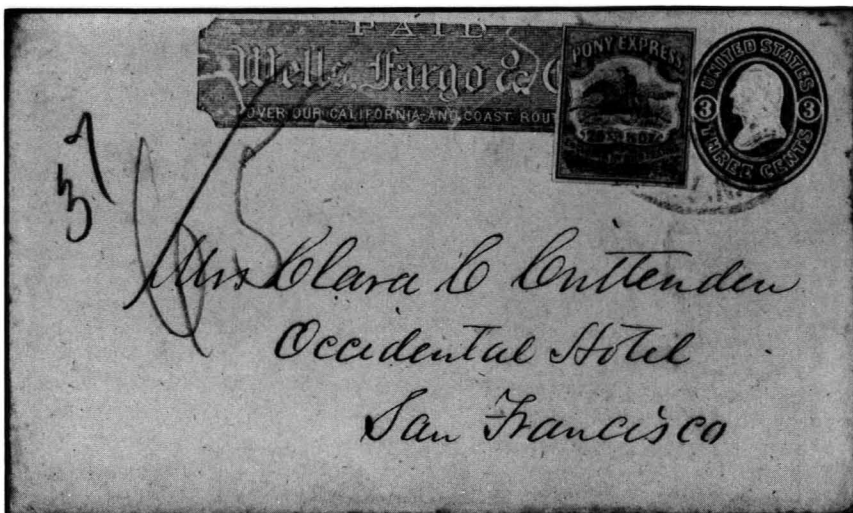 PAID
Wells, Fargo & C
OVER OUR CALIFORNIA AND COAST ROUT
PONY EXPRESS
UNITED STATES
3 3
THREE CENTS
37
Mrs Clara C Crittenden
Occidental Hotel
San Francisco